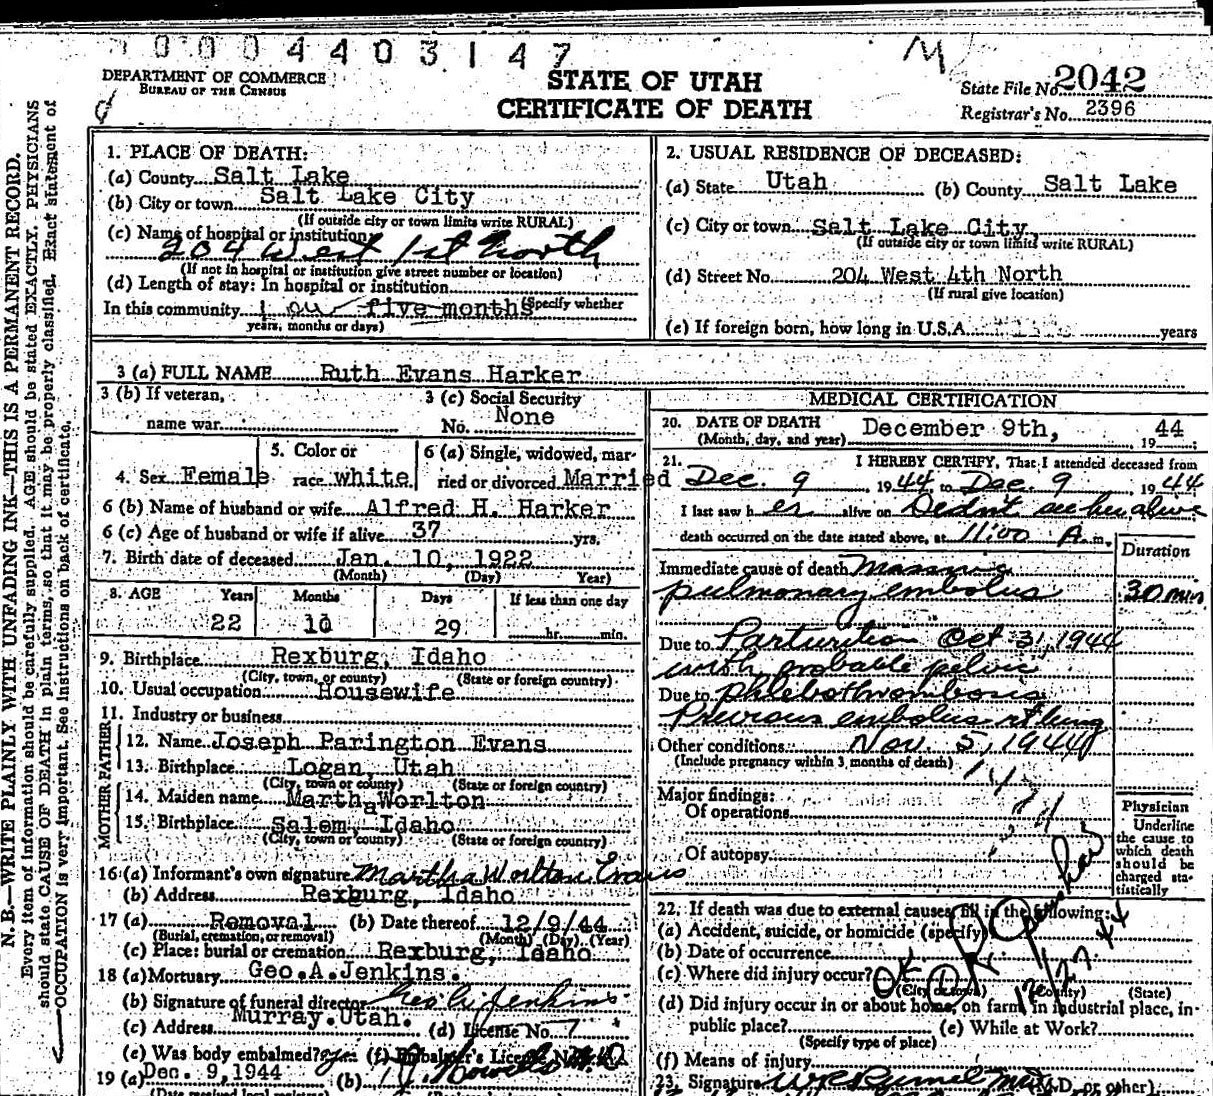 0004403147
M
DEPARTMENT OF COMMERCE
BUREAU OF THE CENSUS
STATE OF UTAH
CERTIFICATE OF DEATH
State File No. 2042
Registrar's No. 2396
N. B.—WRITE PLAINLY WITH UNFADING INK—THIS IS A PERMANENT RECORD.
Every item of information should be carefully supplied. AGE should be stated EXACTLY. PHYSICIANS
should state CAUSE OF DEATH in plain terms, so that it may be properly classified. Exact statement of
OCCUPATION is very important. See instructions on back of certificate.
1. PLACE OF DEATH:
(a) County Salt Lake
(b) City or town Salt Lake City
(If outside city or town limits write RURAL)
(c) Name of hospital or institution
204 West 1st North
(If not in hospital or institution give street number or location)
(d) Length of stay: In hospital or institution
(Specify whether
In this community five months
years, months or days)
2. USUAL RESIDENCE OF DECEASED:
(a) State Utah (b) County Salt Lake
(c) City or town Salt Lake City
(If outside city or town limits write RURAL)
(d) Street No. 204 West 4th North
(If rural give location)
(e) If foreign born, how long in U.S.A. years
3 (a) FULL NAME Ruth Evans Harker
3 (b) If veteran,
name war
3 (c) Social Security
No. None
4. Sex Female
5. Color or
race white
6 (a) Single, widowed, mar-
ried or divorced Married
6 (b) Name of husband or wife Alfred H. Harker
6 (c) Age of husband or wife if alive 37 yrs.
7. Birth date of deceased Jan. 10, 1922
(Month) (Day) Year)
8. AGE Years Months Days If less than one day
22 10 29 hr. min.
9. Birthplace Rexburg, Idaho
(City, town, or county) (State or foreign country)
10. Usual occupation Housewife
11. Industry or business
FATHER
12. Name Joseph Parington Evans
13. Birthplace Logan, Utah
(City, town or county) (State or foreign country)
MOTHER
14. Maiden name Martha Worlton
15. Birthplace Salem, Idaho
(City, town or county) (State or foreign country)
16 (a) Informant's own signature Martha Worlton Evans
(b) Address Rexburg, Idaho
17 (a) Removal (b) Date thereof 12/9/44
(Burial, cremation, or removal) (Month) (Day) (Year)
(c) Place: burial or cremation Rexburg, Idaho
18 (a) Mortuary Geo.A.Jenkins.
(b) Signature of funeral director Geo A Jenkins
(c) Address Murray.Utah. (d) License No. 7
(e) Was body embalmed? yes (f) Embalmer's License No.
19 (a) Dec. 9,1944 (b)
(Date received local registrar)
MEDICAL CERTIFICATION
20. DATE OF DEATH
(Month, day, and year) December 9th, 1944
21. I HEREBY CERTIFY, That I attended deceased from
Dec. 9 1944 to Dec. 9 1944
I last saw her alive on Didnt see her alive
death occurred on the date stated above, at 11:00 A.m.
Duration
Immediate cause of death Massive
pulmonary embolus 30 min
Due to Parturition Oct 31, 1944
with probable pelvic
Due to phlebothrombosis
Previous embolus rt lung
Other conditions Nov. 5, 1944
(Include pregnancy within 3 months of death)
Major findings:
Of operations
Of autopsy
Physician
Underline
the cause to
which death
should be
charged sta-
tistically
22. If death was due to external causes, fill in the following:
(a) Accident, suicide, or homicide (specify)
(b) Date of occurrence
(c) Where did injury occur?
(City or town) (County) (State)
OK
12/27 44
(d) Did injury occur in or about home, on farm, in industrial place, in
public place? (e) While at Work?
(Specify type of place)
(f) Means of injury
23. Signature (M.D. or other)